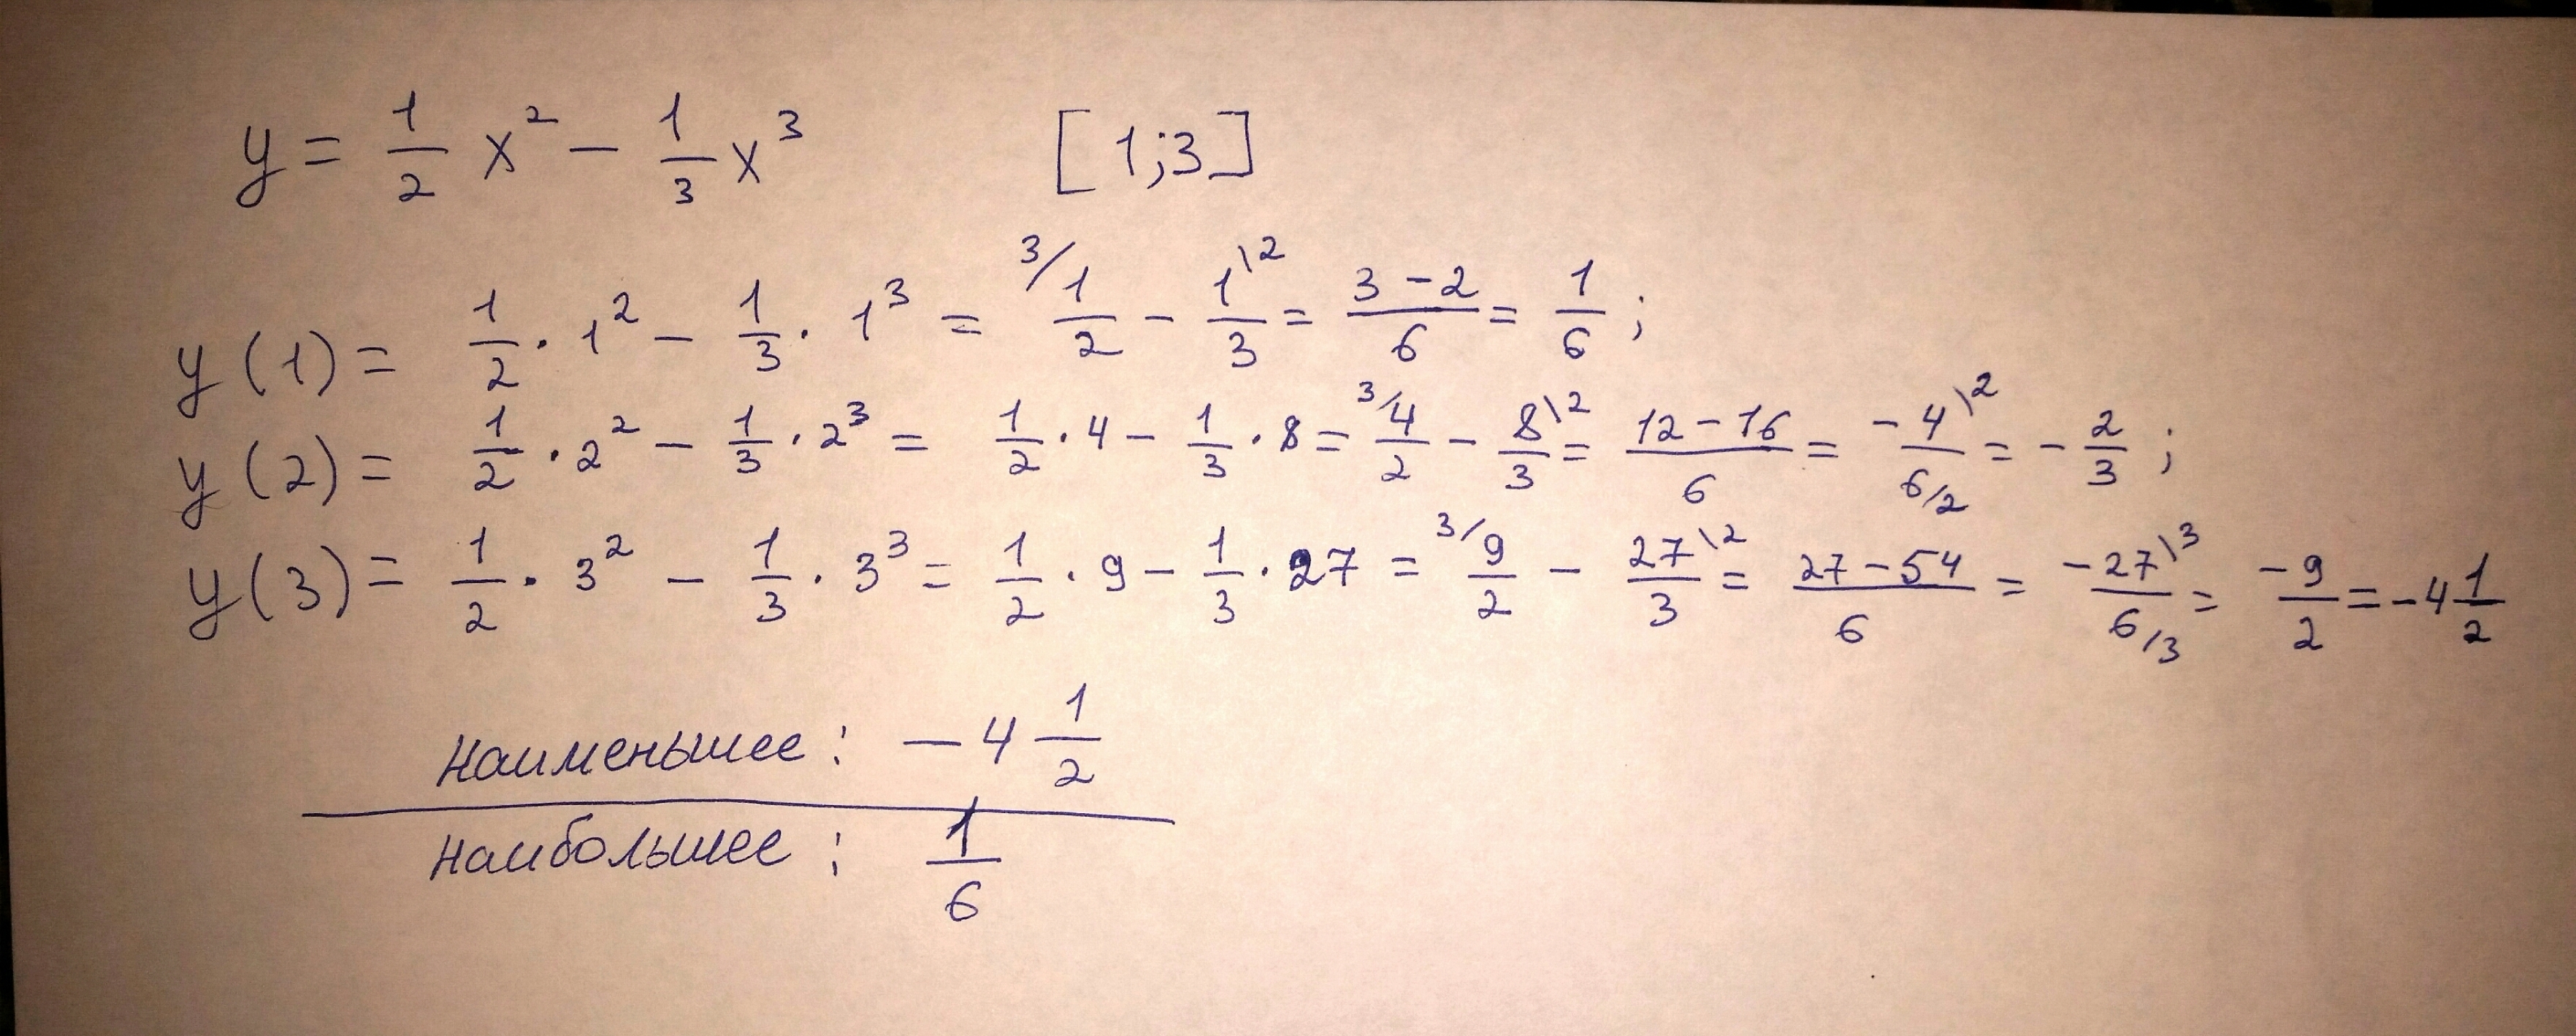 y = 1/2 x² - 1/3 x³ [1;3]
y(1) = 1/2 · 1² - 1/3 · 1³ = ³/1/2 - 1\²/3 = 3-2/6 = 1/6 ;
y(2) = 1/2 · 2² - 1/3 · 2³ = 1/2 · 4 - 1/3 · 8 = ³/4/2 - 8\²/3 = 12-16/6 = -4\²/6/2 = - 2/3 ;
y(3) = 1/2 · 3² - 1/3 · 3³ = 1/2 · 9 - 1/3 · 27 = ³/9/2 - 27\²/3 = 27-54/6 = -27\³/6/3 = -9/2 = -4 1/2
наименьшее: -4 1/2
наибольшее: 1/6